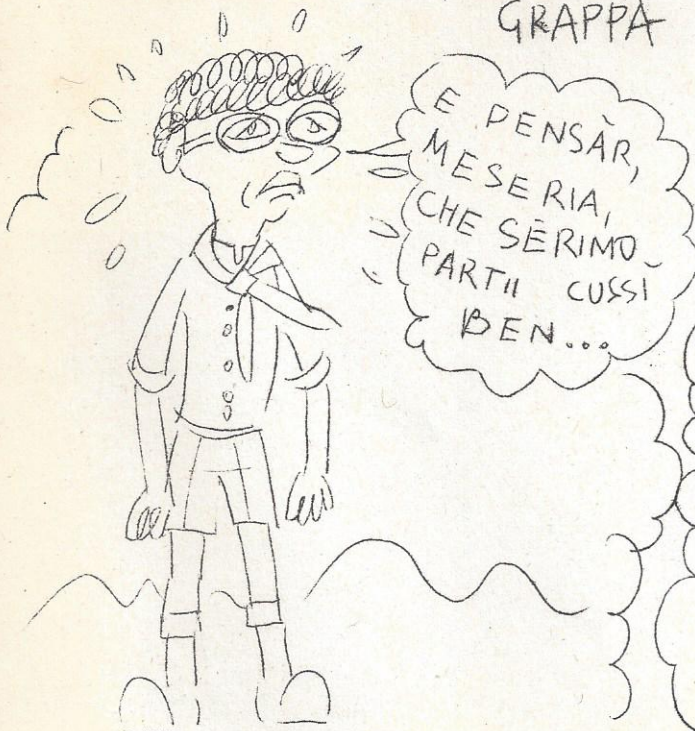 GRAPPA
E PENSÀR,
MESERIA,
CHE SĒRIMO
PARTII CUSSÌ
BEN...